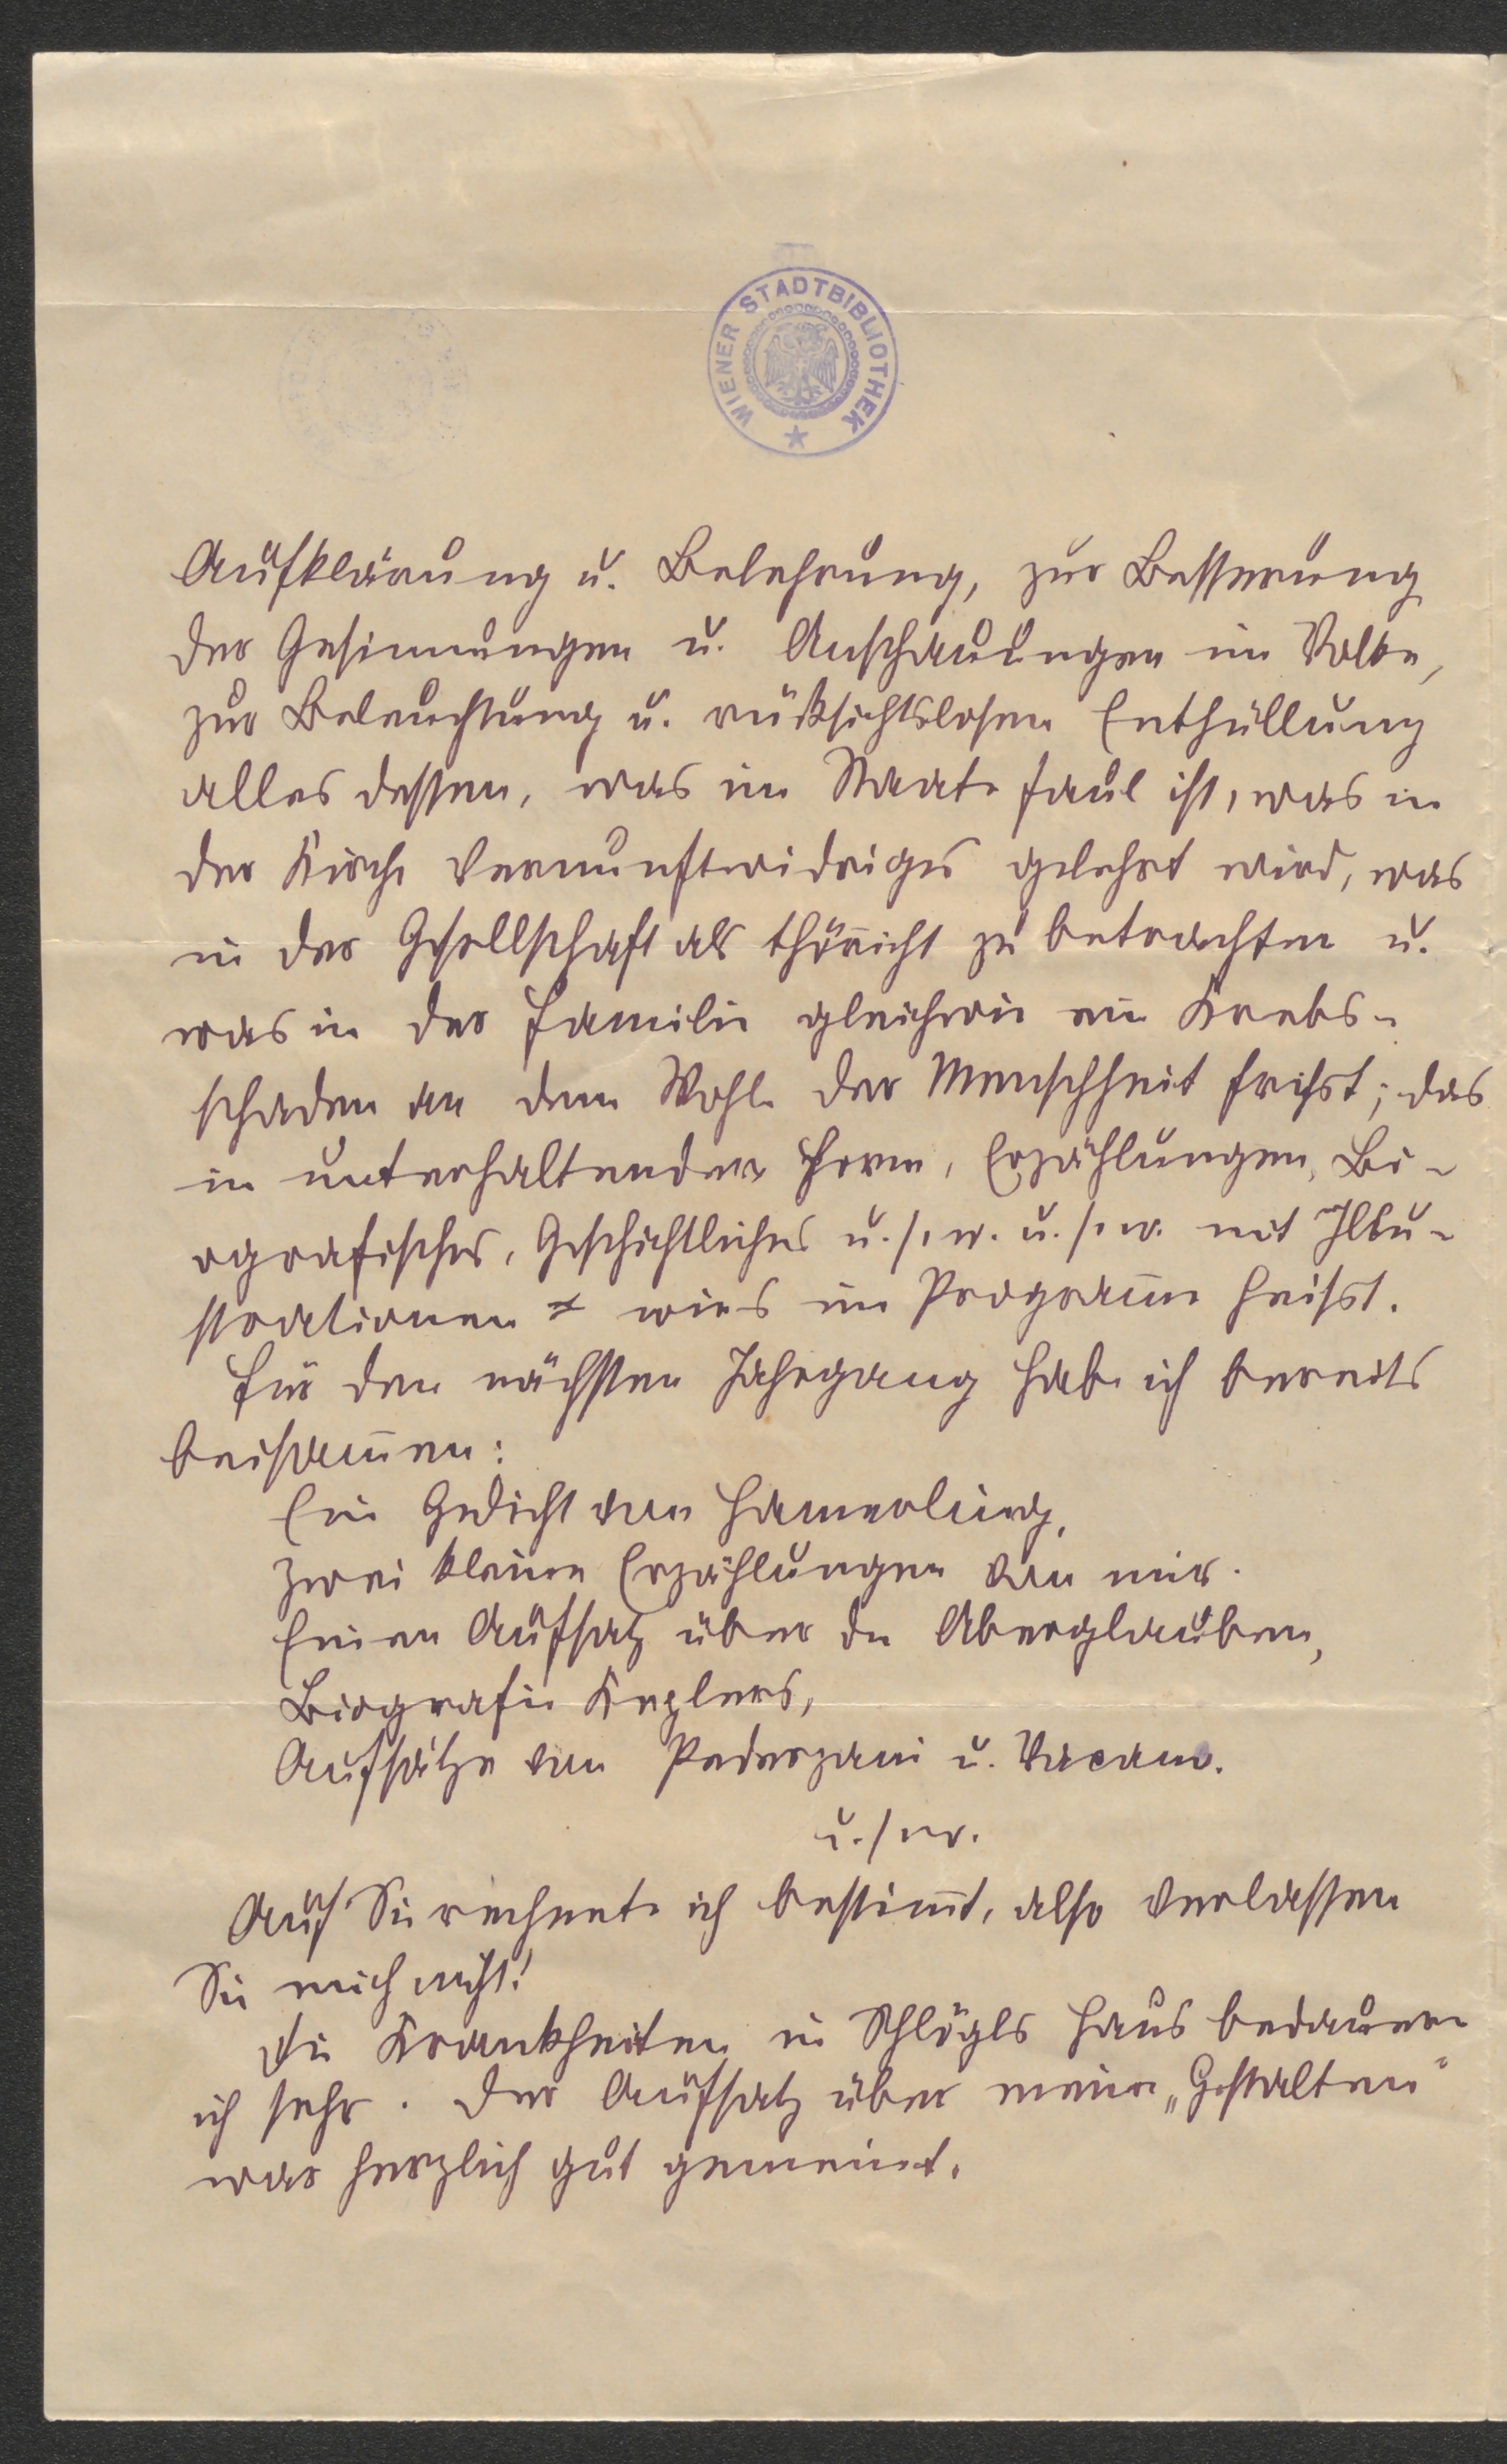 WIENER STADTBIBLIOTHEK
Aufklärung u. Belehrung, zur Besserung
der Gesinnungen u. Anschauungen im Volke,
zur Beleuchtung u. rücksichtslosen Enthüllung
alles dessen, was im Staate faul ist, was in
der Kirche Vernunftwidriges gelehrt wird, was
in der Gesellschaft als thöricht zu betrachten u.
was in der Familie gleichwie ein Krebs-
schaden an dem Wohle der Menschheit frißt; das
in unterhaltender Form, Erzählungen, Bi-
ografisches, Geschichtliches u. s. w. u. s. w. mit Illu-
strationen wies im Program̅ heißt.
Für den nächsten Jahrgang habe ich bereits
beisam̅en:
Ein Gedicht von Hamerling,
zwei kleine Erzählungen von mir.
Einen Aufsatz über den Aberglauben,
Biografie Keplers,
Aufsätze von Pederzani u. Vacano.
u. s w.
Auf Sie rechnete ich bestim̅t, also verlassen
Sie mich nicht!
Die Krankheiten in Schlögls Haus bedauere
ich sehr. Der Aufsatz über meine „Gestalten“
war herzlich gut gemeint.